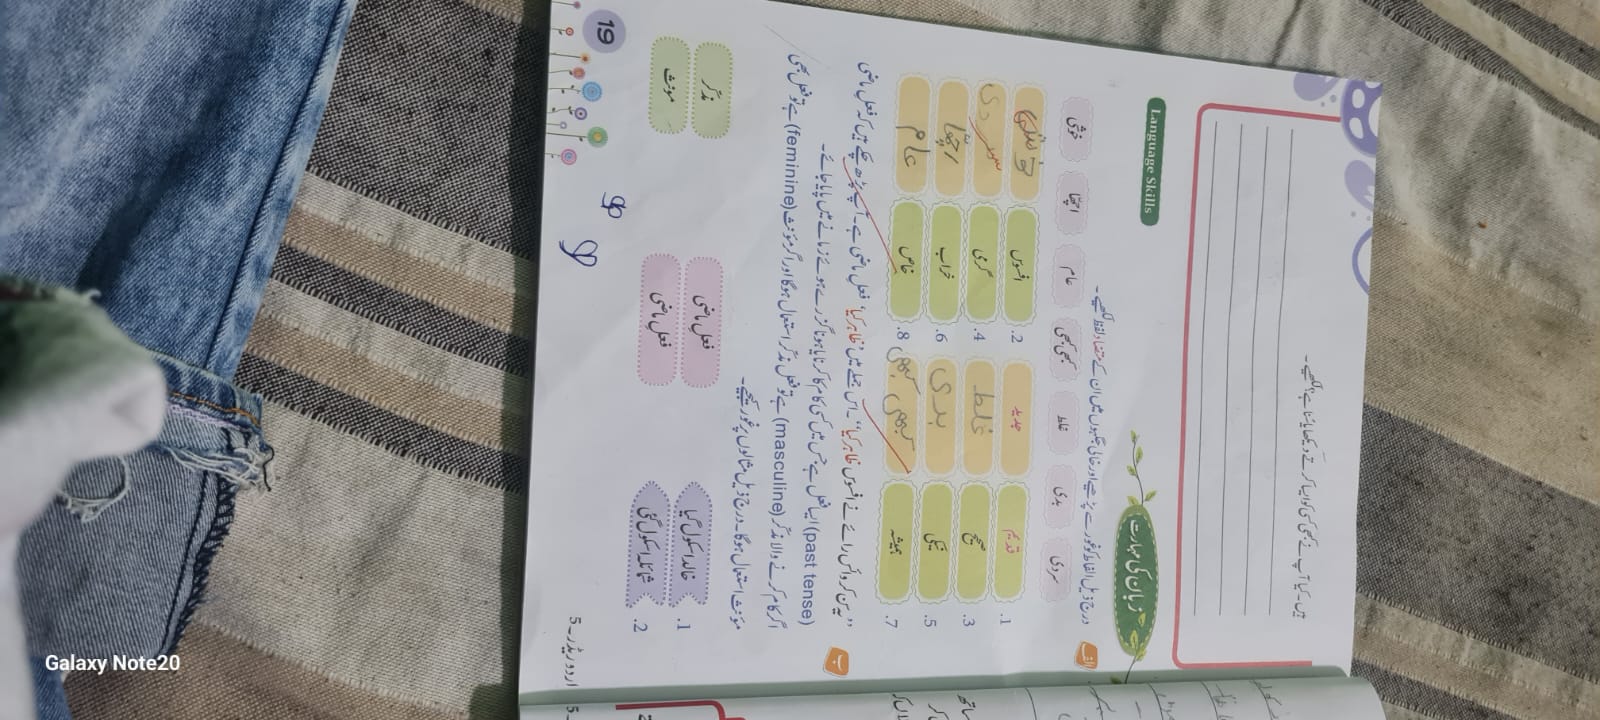 ہیں۔ کیا آپ نے کبھی کسی کو ایسا کرتے دیکھا یا سُنا ہے؟ لکھیے۔
زبان کی مہارت
Language Skills
الف درج ذیل الفاظ کو غور سے پڑھیے اور خالی جگہوں میں ان کے متضاد لفظ لکھیے۔
سردی بدی غلط کبھی کبھی عام اچھا خوشی
1. قدیم جدید 2. افسوس خوشی
3. صحیح غلط 4. گرمی سردی
5. نیکی بدی 6. خراب اچھا
7. ہمیشہ کبھی کبھی 8. خاص عام
ب ”یہ سن کر وائس رائے نے افسوس ظاہر کیا“۔ اس جملے میں ’ظاہر کیا‘ فعل ماضی ہے۔ آپ پڑھ چکے ہیں کہ فعل ماضی
(past tense) ایسا فعل ہے جس میں کسی کام کا کرنا یا ہونا گزرے ہوئے زمانے میں پایا جائے۔
اگر کام کرنے والا مذکّر (masculine) ہے تو فعل مذکّر استعمال ہوگا اور اگر مؤنث (feminine) ہے تو فعل بھی
مؤنث استعمال ہوگا۔ درج ذیل مثالوں پر غور کیجیے۔
1. خالد اسکول گیا فعل ماضی مذکّر
2. شمائلہ اسکول گئی فعل ماضی مونث
اردو ریڈر۔5
19
Galaxy Note20